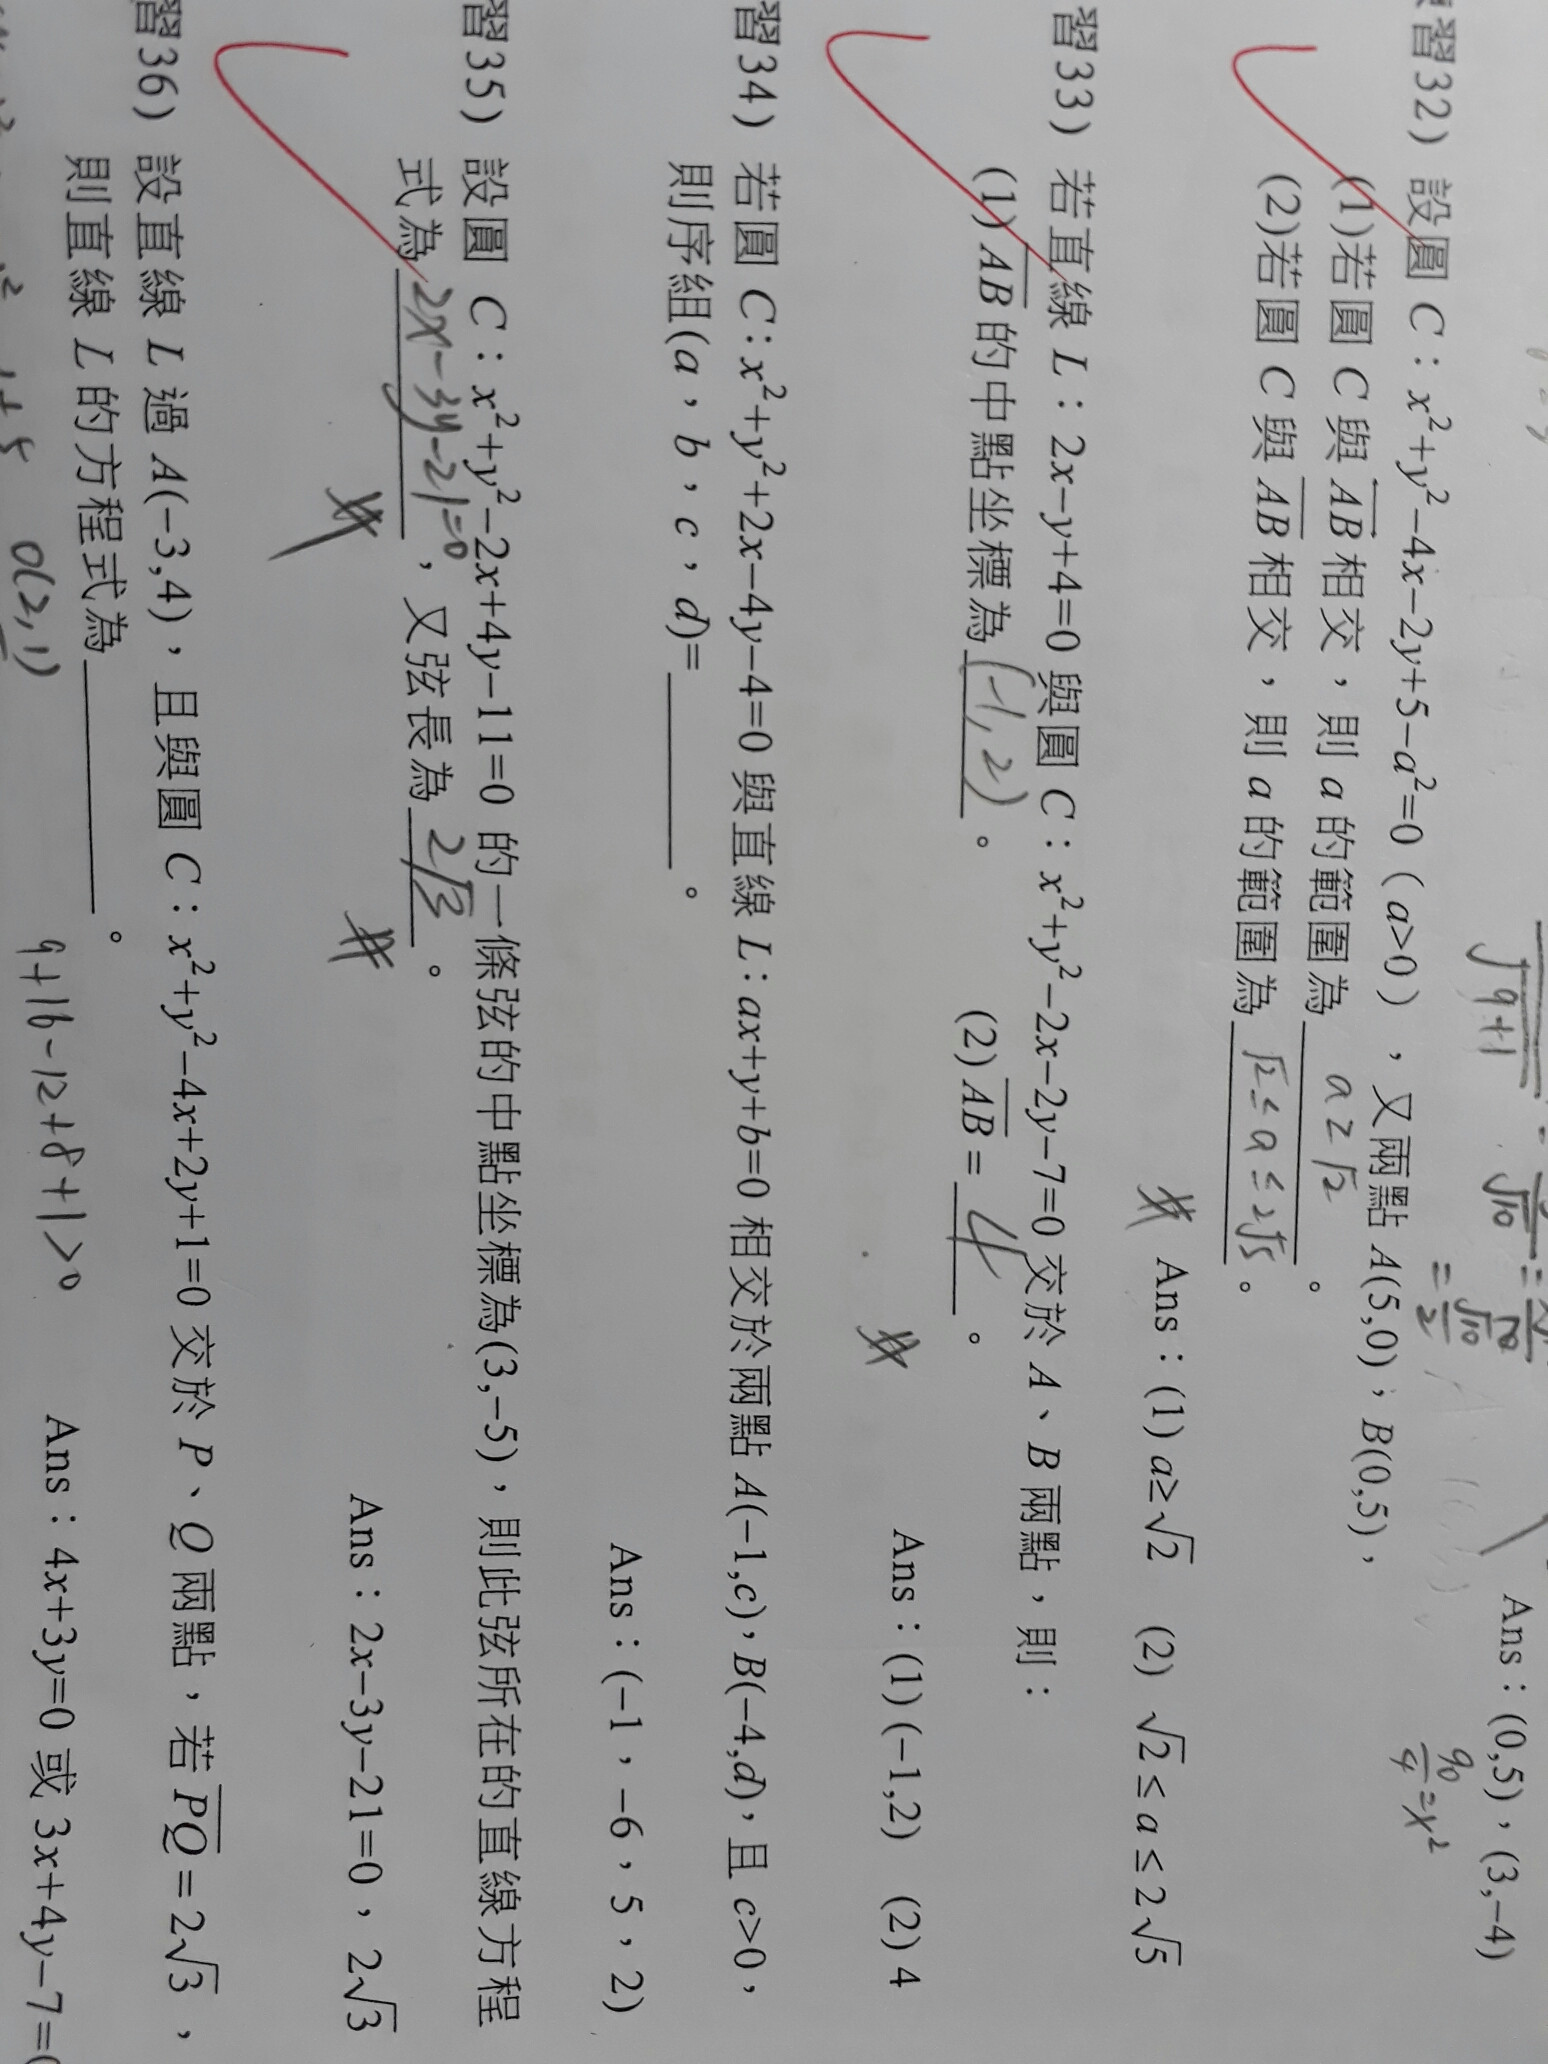 Ans：(0,5)，(3,-4)
習32) 設圓 C：x²+y²-4x-2y+5-a²=0（a>0），又兩點 A(5,0)，B(0,5)，
(1)若圓 C 與 AB 相交，則 a 的範圍為 a≥√2 。
(2)若圓 C 與 AB 相交，則 a 的範圍為 √2≤a≤2√5 。
Ans：(1) a≥√2 (2) √2≤a≤2√5
習33) 若直線 L：2x-y+4=0 與圓 C：x²+y²-2x-2y-7=0 交於 A、B 兩點，則：
(1) AB 的中點坐標為 (-1,2) 。 (2) AB = 4 。
Ans：(1) (-1,2) (2) 4
習34) 若圓 C：x²+y²+2x-4y-4=0 與直線 L：ax+y+b=0 相交於兩點 A(-1,c)，B(-4,d)，且 c>0，
則序組(a，b，c，d)= 。
Ans：(-1，-6，5，2)
習35) 設圓 C：x²+y²-2x+4y-11=0 的一條弦的中點坐標為(3,-5)，則此弦所在的直線方程
式為 2x-3y-21=0 ，又弦長為 2√3 。
Ans：2x-3y-21=0，2√3
習36) 設直線 L 過 A(-3,4)，且與圓 C：x²+y²-4x+2y+1=0 交於 P、Q 兩點，若 PQ=2√3，
則直線 L 的方程式為 。
Ans：4x+3y=0 或 3x+4y-7=
9+16-12+8+1>0